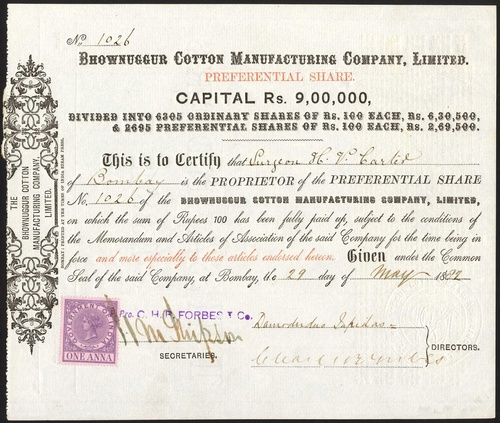 No. 1026
BHOWNUGGUR COTTON MANUFACTURING COMPANY, LIMITED.
PREFERENTIAL SHARE.
CAPITAL Rs. 9,00,000,
DIVIDED INTO 6305 ORDINARY SHARES OF Rs. 100 EACH, Rs. 6,30,500,
& 2695 PREFERENTIAL SHARES OF Rs. 100 EACH, Rs. 2,69,500.
This is to Certify that Surgeon H. V. Carter
of Bombay is the PROPRIETOR of the PREFERENTIAL SHARE
No. 1026 of the BHOWNUGGUR COTTON MANUFACTURING COMPANY, LIMITED,
on which the sum of Rupees 100 has been fully paid up, subject to the conditions of
the Memorandum and Articles of Association of the said Company for the time being in
force and more especially to those articles endorsed hereon. Given under the Common
Seal of the said Company, at Bombay, the 29 day of May 1882
Pro. C. H. B. FORBES & Co.
SECRETARIES.
DIRECTORS.
THE
BHOWNUGGUR COTTON
MANUFACTURING COMPANY,
LIMITED.
GOVERNMENT OF INDIA
ONE ANNA